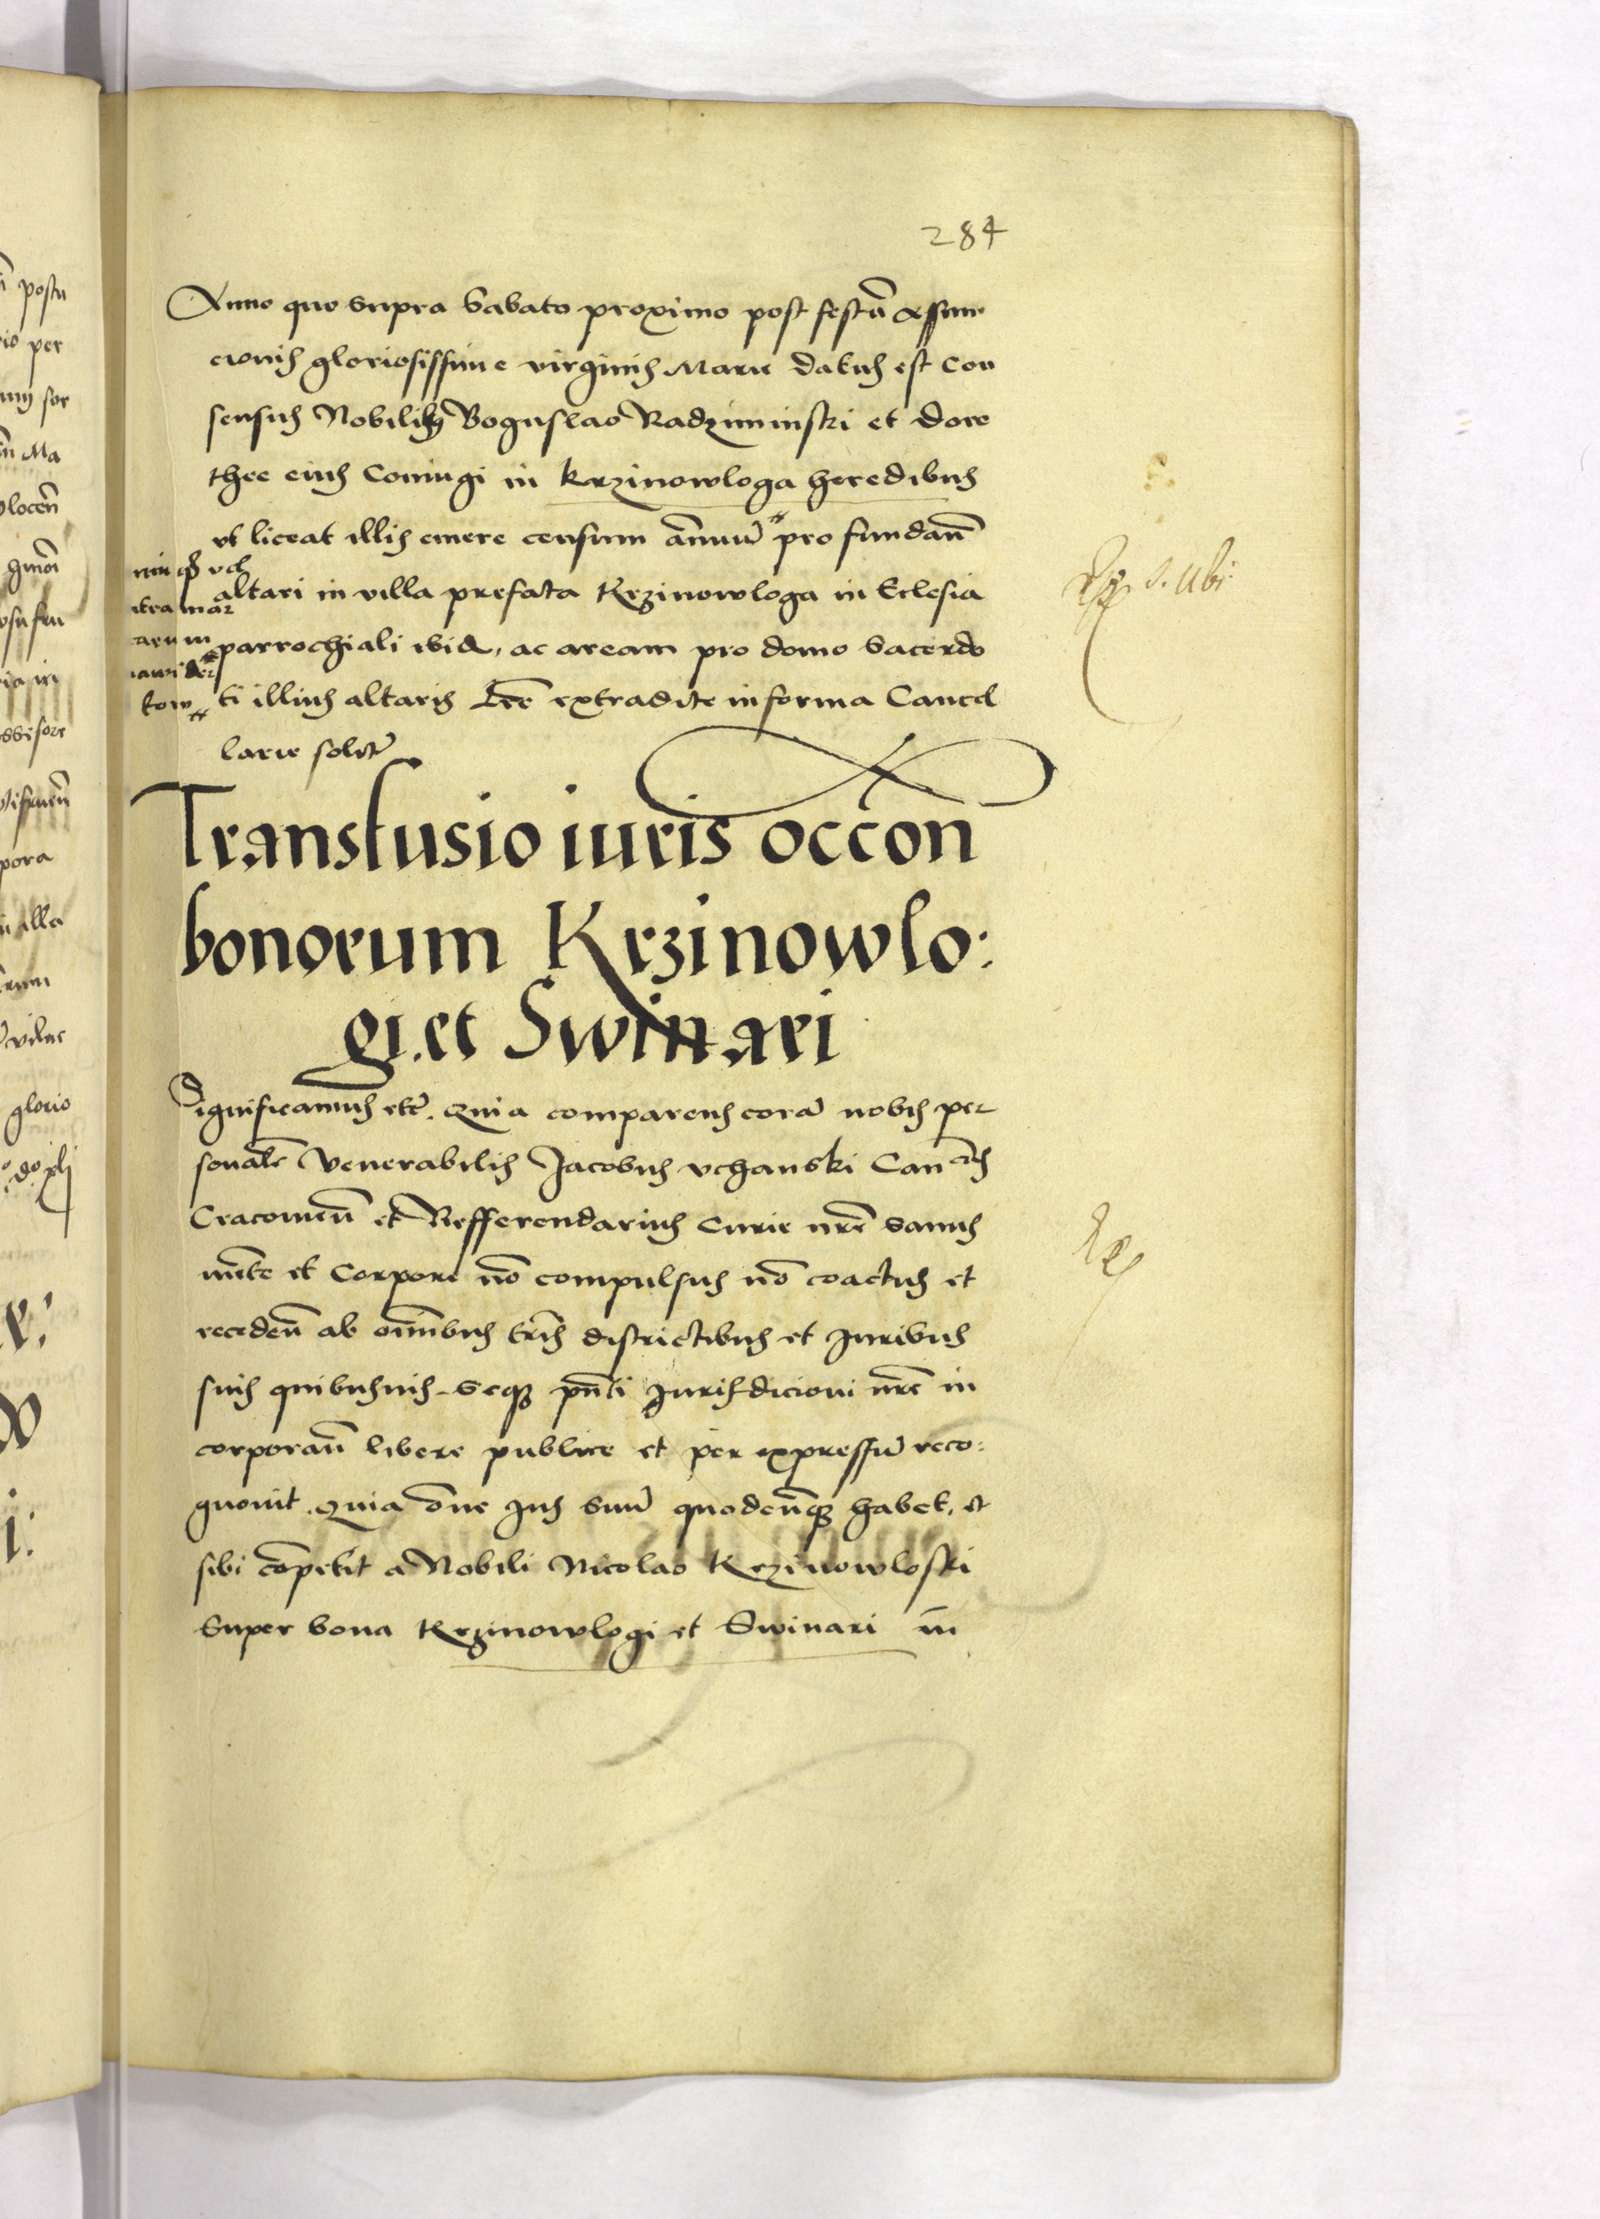 284
Anno quo supra Sabato proximo post festū Assum
cionis gloriosissime virginis Marie datus est Con
sensus Nobilibus Boguslao Radziminski et Doro
thee eius Coniugi in Krzinowloga heredibus
vt liceat illis emere censum annuū pro fundan̄
altari in villa prefata Krzinowloga in Eclesia
parrochiali ibid, ac aream pro domo Sacerdo
ti illius altaris Lr̄e extradite in forma Cancel
larie solit̄
s. ubi
Transfusio iuris occon
bonorum Krzinowlo:
gi et Swinari
Significamus etc̄. Quia comparens corā nobis per
sonalr̄ Venerabilis Jacobus Vchanski Can cus
Cracouien̄ et Refferendarius Curie nr̄e sanus
mēte et Corpore nō compulsus nō coactus et
receden̄ ab oīnibus tr̄is districtibus et Juribus
suis quibusuis seq3 pn̄ti Jurisdicioni nr̄e in
corporan̄ libere publice et per expressū reco:
gnouit. Quia om̄e Jus suū quodcunq3 habet, et
sibi cōpetit a Nobili Nicolao Krzinowloski
Super bona Krzinowlogi et Swinari in